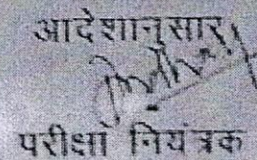 आदेशानुसार,
परीक्षा नियंत्रक